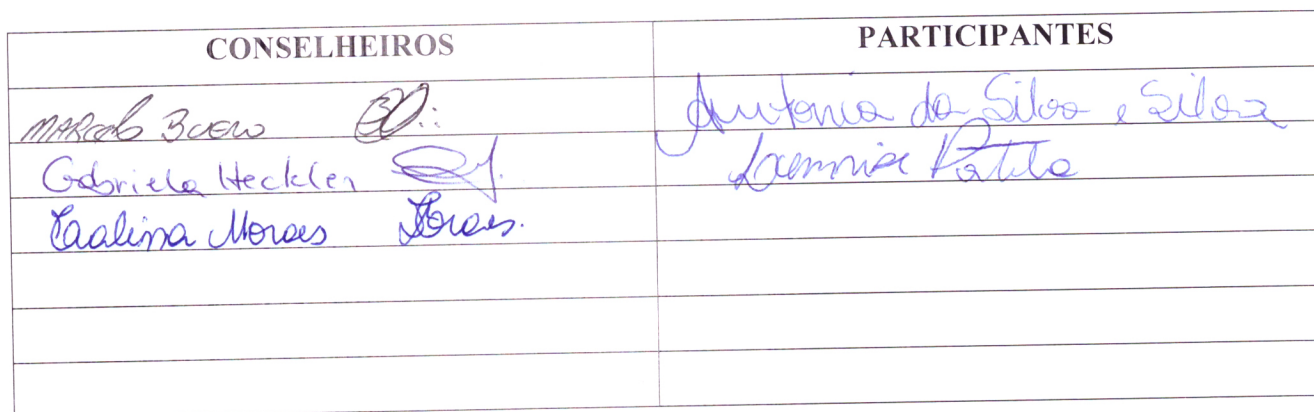 CONSELHEIROS PARTICIPANTES
Marcelo Bueno Antonia da Silva e Silva
Gabriela Heckler
Moraes Moraes.